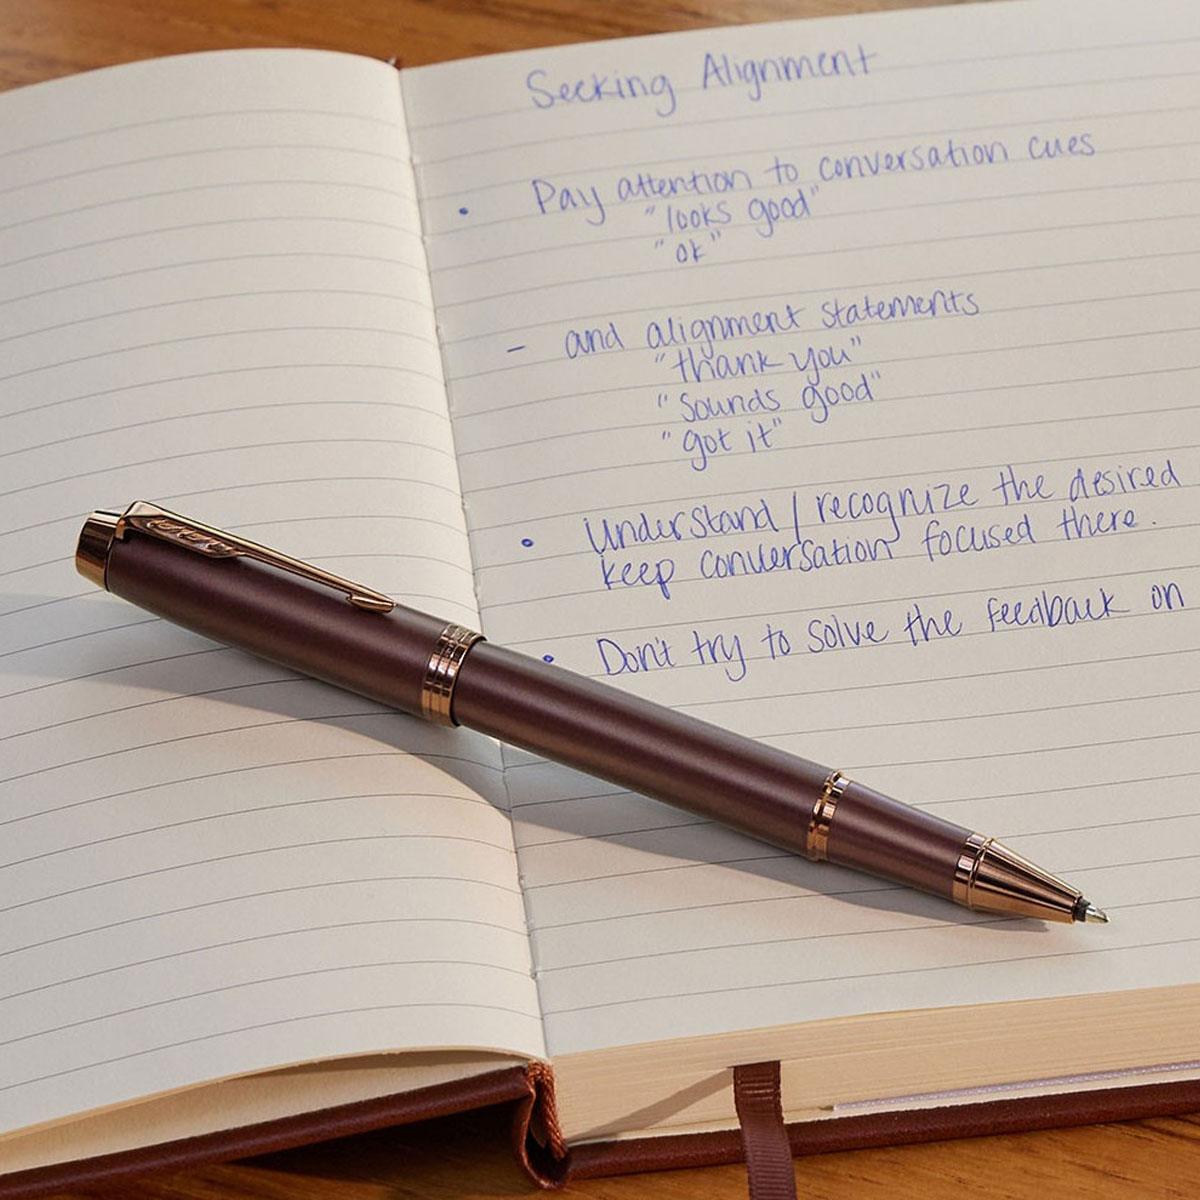 Seeking Alignment
• Pay attention to conversation cues
"looks good"
"ok"
– and alignment statements
"thank you"
"Sounds good"
"got it"
• Understand / recognize the desired
keep conversation focused there.
• Don't try to solve the feedback on